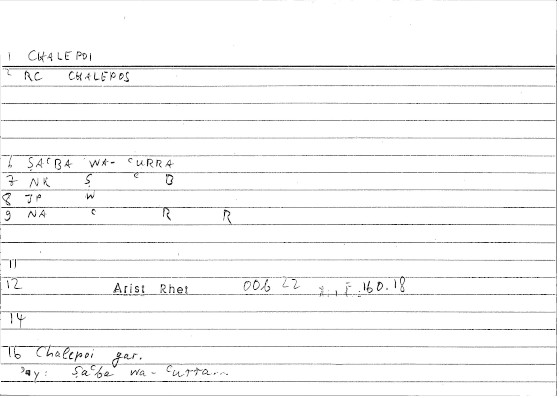 1 CHALEPOI
2 RC CHALEPOS
6 ṢAᶜBA WA- ᶜURRA
7 NK Ṣ ᶜ B
8 JP W
9 NA ᶜ R R
11
12 Arist Rhet 006 22 160.18
14
16 Chalepoi gar.
Ṣaᶜba wa- ᶜurra..